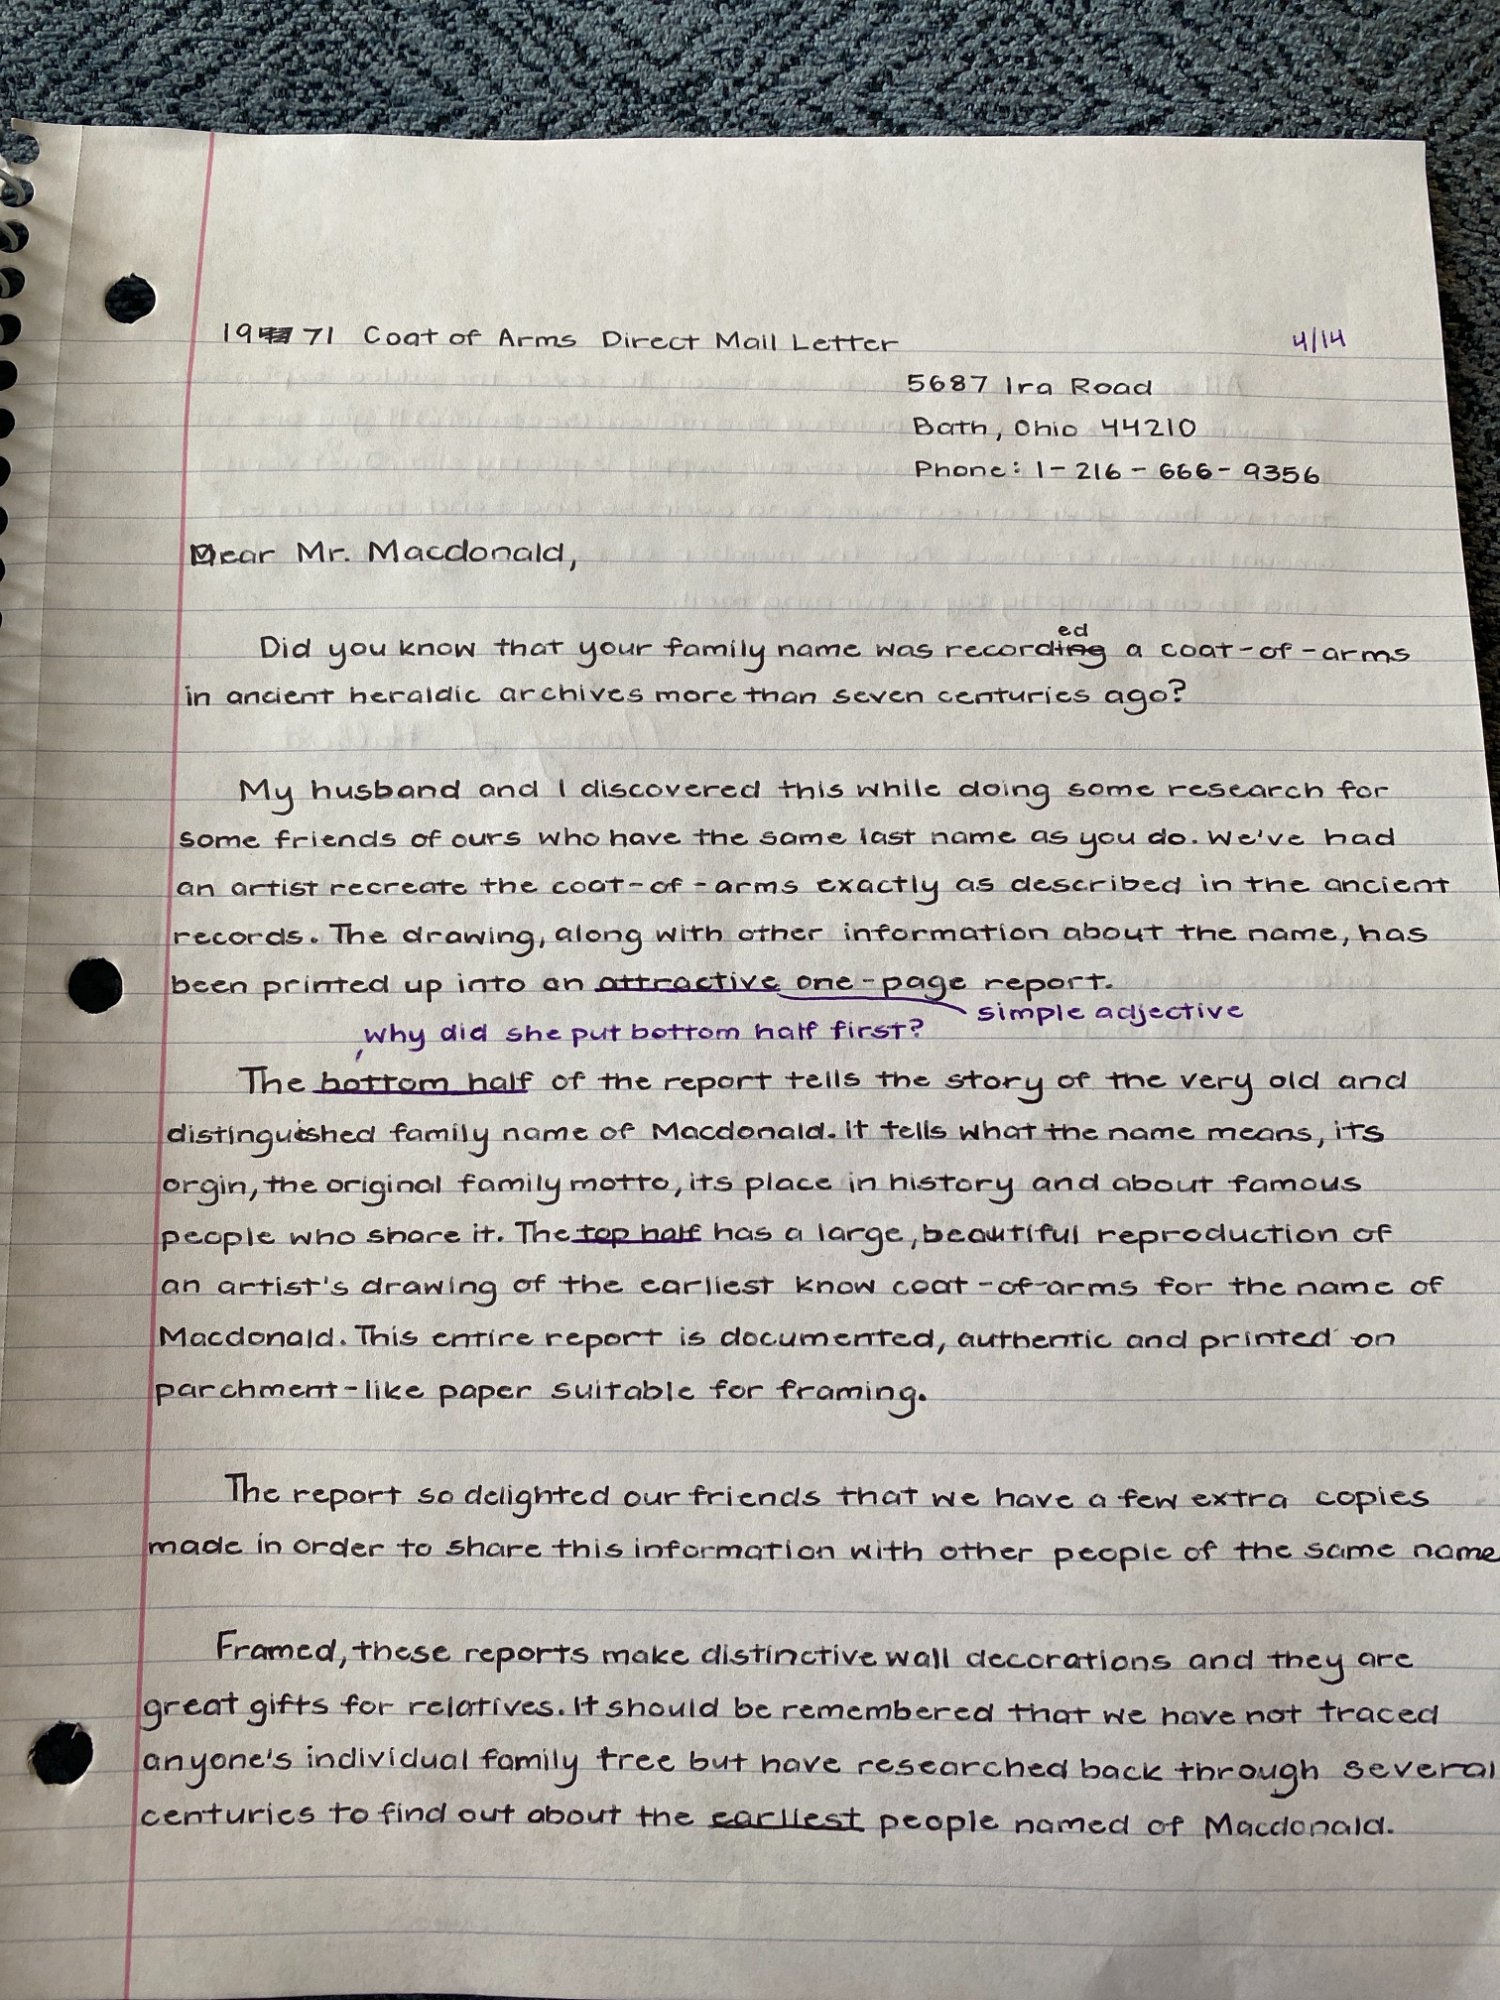 1971 Coat of Arms Direct Mail Letter 4/14
5687 Ira Road
Bath, Ohio 44210
Phone: 1-216-666-9356
Dear Mr. Macdonald,
Did you know that your family name was recorded a coat-of-arms
in ancient heraldic archives more than seven centuries ago?
My husband and I discovered this while doing some research for
some friends of ours who have the same last name as you do. We've had
an artist recreate the coat-of-arms exactly as described in the ancient
records. The drawing, along with other information about the name, has
been printed up into an attractive one-page report.
simple adjective
why did she put bottom half first?
The bottom half of the report tells the story of the very old and
distinguished family name of Macdonald. It tells what the name means, its
orgin, the original family motto, its place in history and about famous
people who share it. The top half has a large, beautiful reproduction of
an artist's drawing of the earliest know coat-of-arms for the name of
Macdonald. This entire report is documented, authentic and printed on
parchment-like paper suitable for framing.
The report so delighted our friends that we have a few extra copies
made in order to share this information with other people of the same name
Framed, these reports make distinctive wall decorations and they are
great gifts for relatives. It should be remembered that we have not traced
anyone's individual family tree but have researched back through several
centuries to find out about the earliest people named of Macdonald.